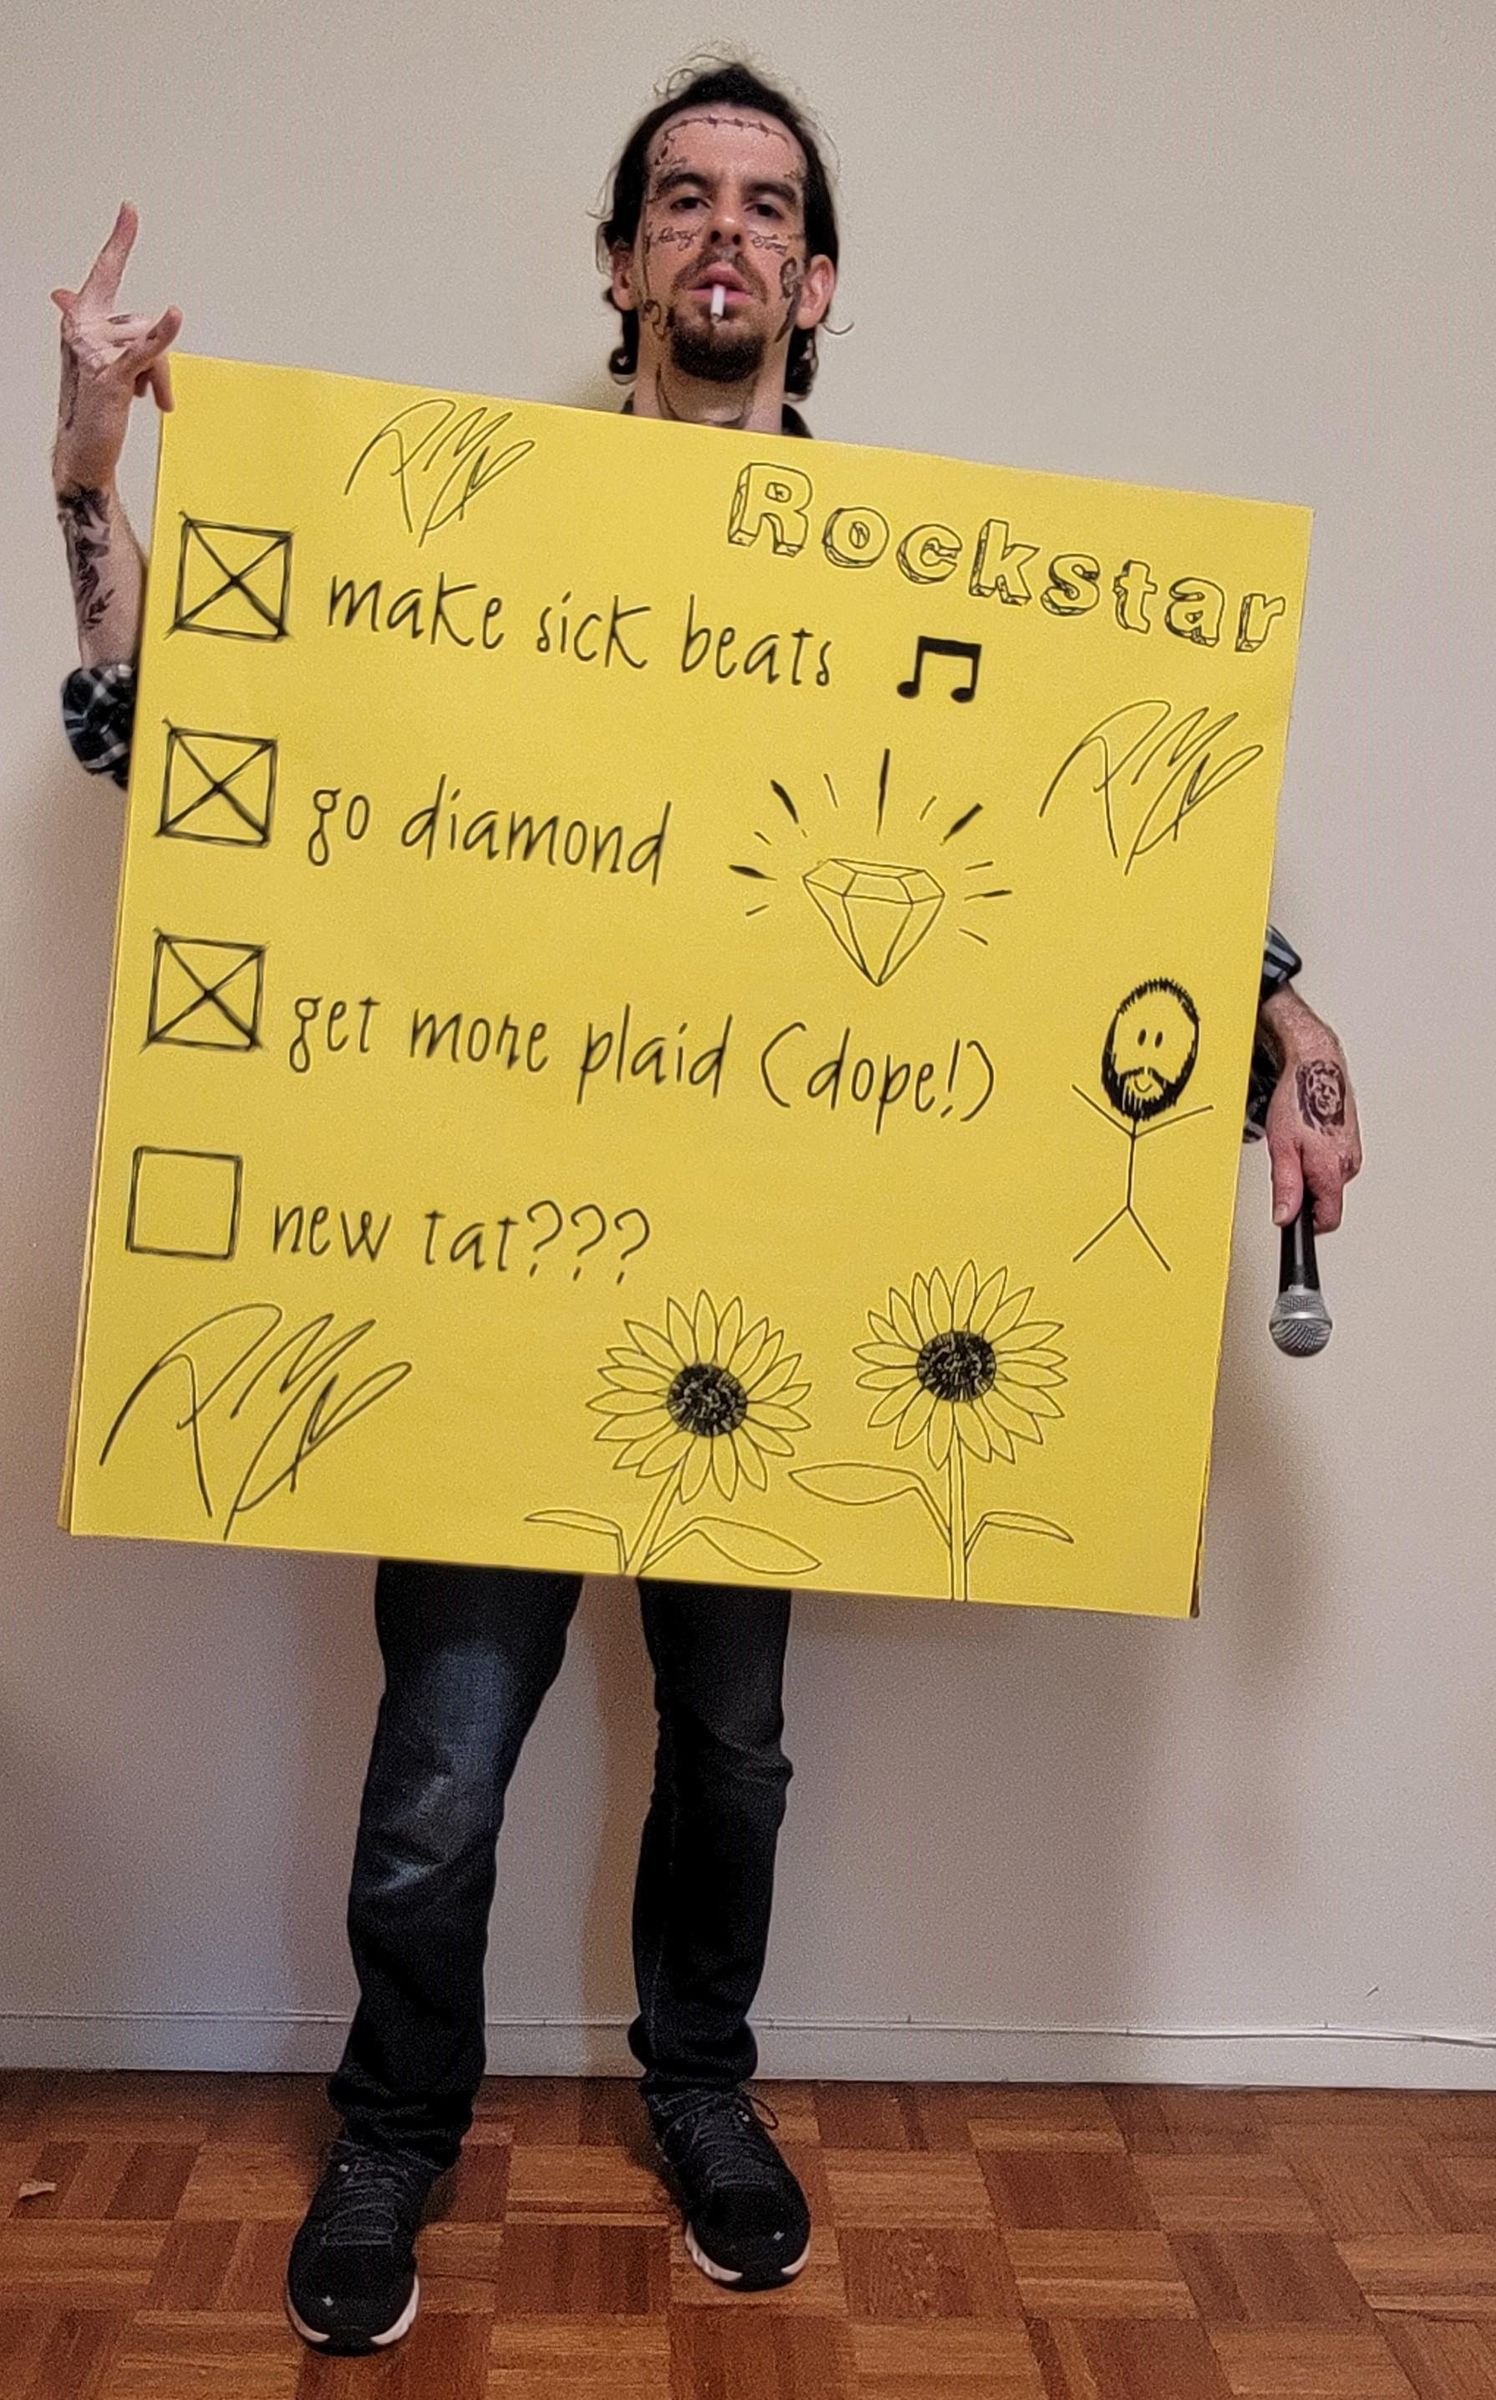 Rockstar
make sick beats
go diamond
get more plaid (dope!)
new tat???